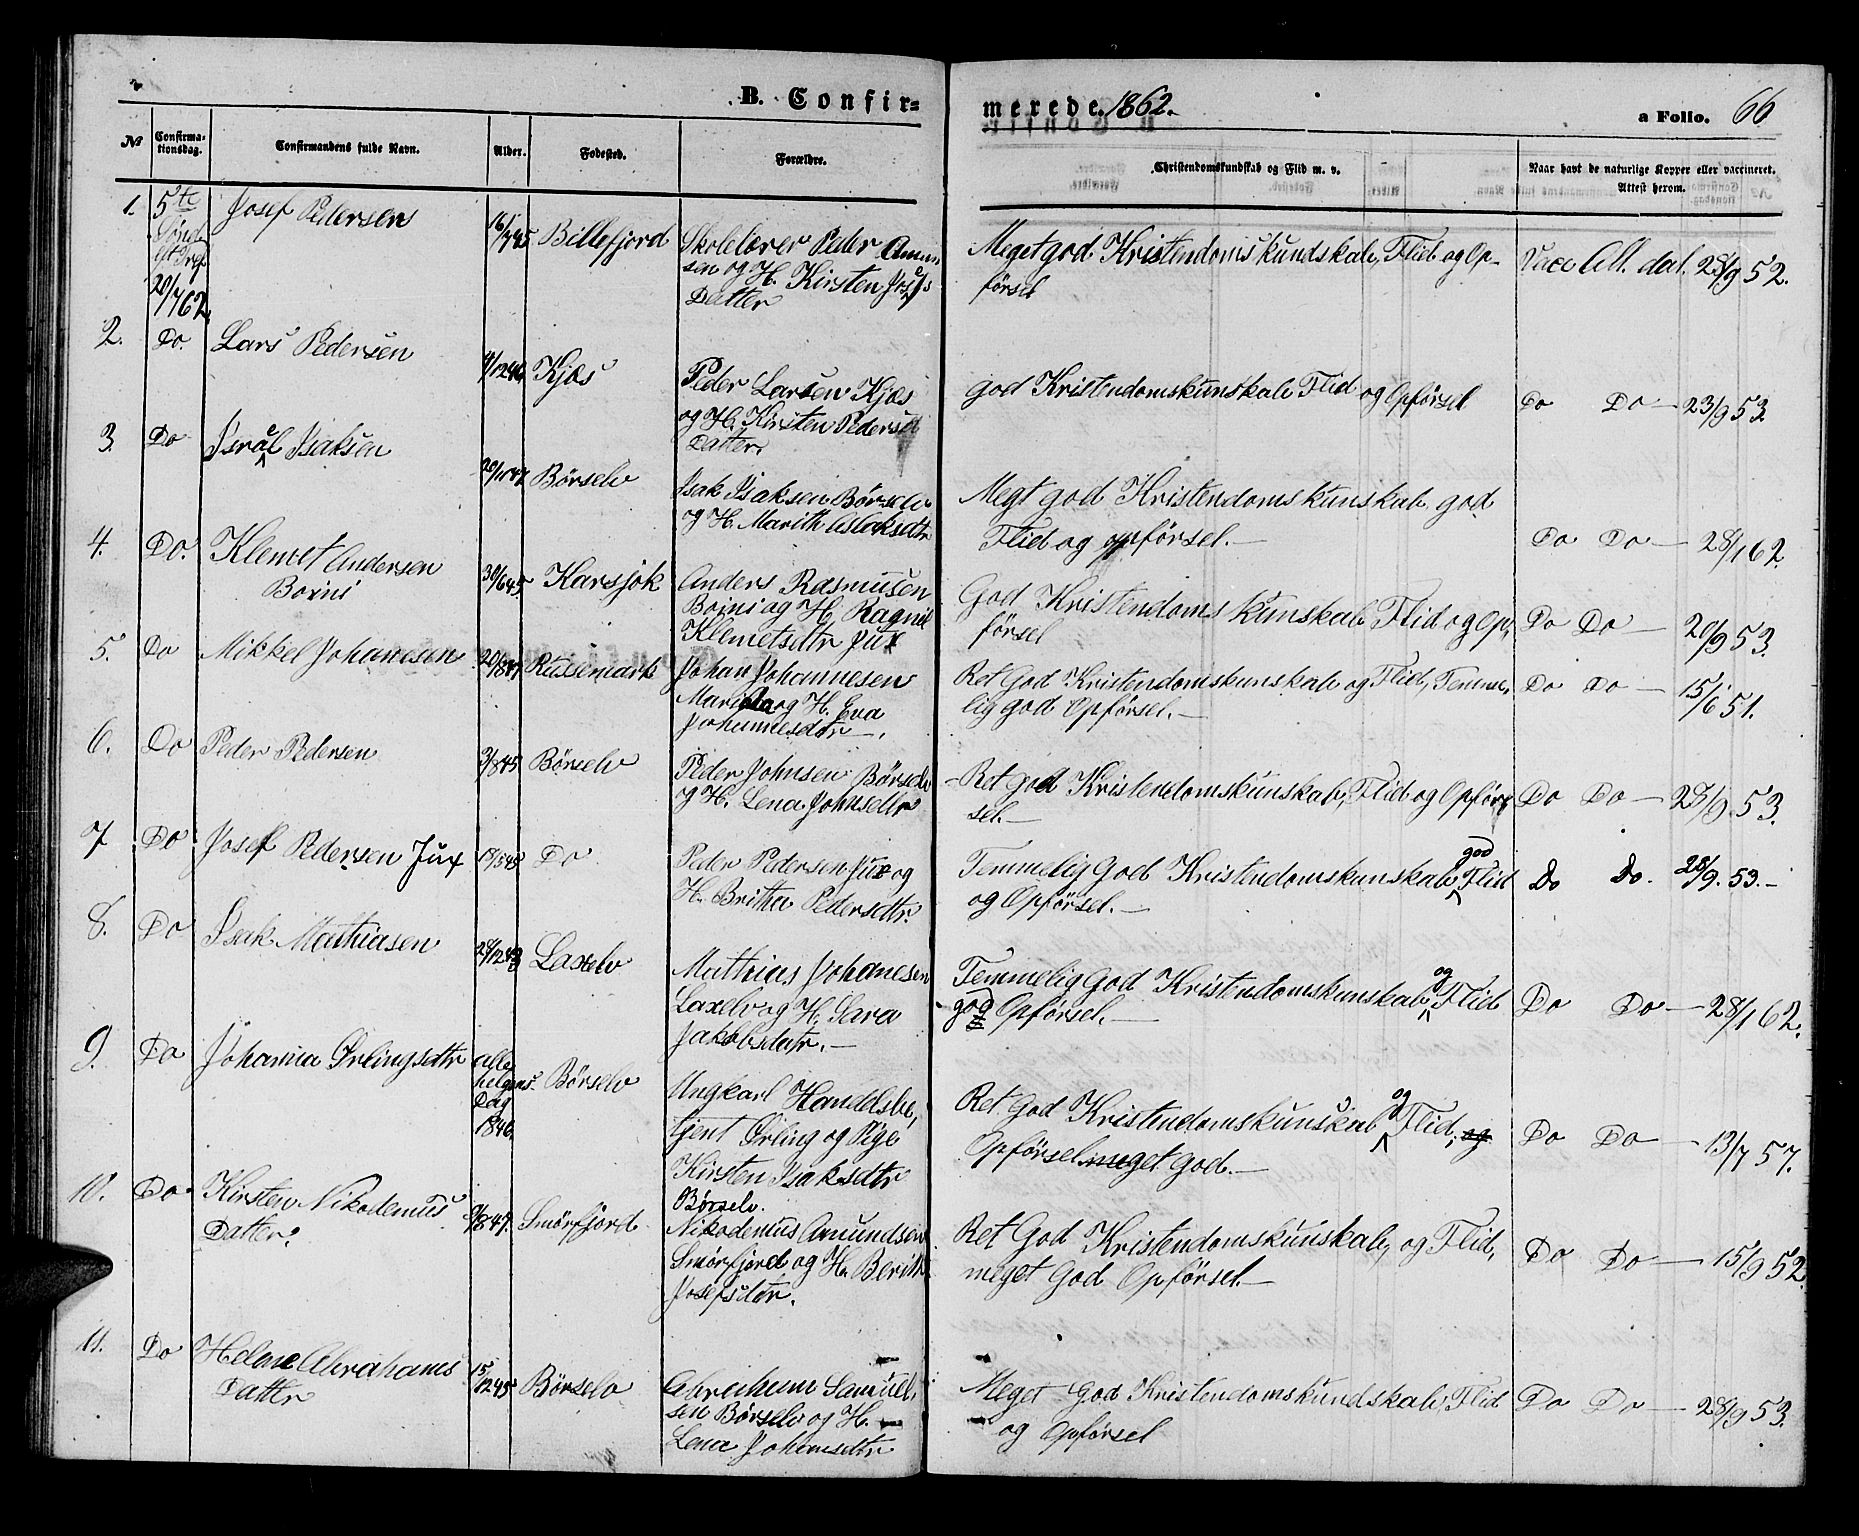 B. Confir=
merede. 1862.
a Folio. 66
№
Confirma-
tionsdag.
Confirmandens fulde Navn.
Alder.
Fødested.
Forældre.
Christendomskundskab og Flid m. v.
Naar havt de naturlige Kopper eller vaccineret.
Attest herom.
1. 5te Josef Pedersen 16/7 45 Billefjord Skolelærer Peder Amun
sen og H. Kirsten Josefs
Datter
Sønd.
20/7 62.
Meget god Kristendomskundskab, Flid og Op-
førsel
Vacc Att. dat. 28/9 52.
2. Do. Lars Pedersen 4/12 46 Kjæs Peder Larsen Kjæs
og H. Kirsten Peders
Datter.
god Kristendomskunskab Flid og Opførsel
Do Do — 23/9 53
3. Do Israel Isaksen 20/10 47 Børselv Isak Isaksen Børselv
og H. Marith Aslaksdtr
Megt god Kristendomskunskab god
Flid og opførsel. —
Do Do — 28/1 62
4. Do. Klemet Andersen
Boini
30/6 45 Karsjok Anders Rasmusen
Boini og H. Ragnil
Klemetsdtr Jux
God Kristendoms kunskab Flid og Op,
førsel
Do Do — 20/9 53.
5. Do Mikkel Johanesen 20/8 47 Russemark Johan Johannesen
og H. Eva
Johannesdtr —.
Ret God Kristendomskunskab og Flid, Temme,
lig god Opførsel. —
Do Do — 15/6 51.
6. Do Peder Pedersen 3/8 45 Børselv Peder Johnsen Børselv
og H. Lena Johnsdtr
Ret god Kristendomskunskab, Flid og Opfør
sel. —
Do Do — 28/9 53.
7 Do Josef Pedersen Jux Do Peder Pedersen Jux og
H. Britha Pedersdtr.
Temmelig God Kristendomskunskab god Flid
og Opførsel. —
Do Do. 28/9. 53. —
8. Do Isak Mathiasen Laxelv Mathias Johanesen
Laxelv og H. Sara
Jakobsdatr. —
Temmelig God Kristendomskunskab, og Flid
god Opførsel. —
Do Do — 28/1 62.
9. Do Johanna Ørlingsdtr Alle
helgens
Dag
1846.
Børselv Ungkarl Handelsbe,
tjent Ørling og Pige
Kirsten Isaksdtr
Børselv.
Ret God Kristendomskunskab og Flid, og
Opførsel meget god. —
Do Do — 13/7 57.
10. Do. Kirsten Nikodemus
Datter.
9/8 47. Smørfjord Nikodemus Amundsen
Smørfjord og H. Berith
Josefsdtr.
Ret God Kristendomskunskab, og Flid,
meget God Opførsel. —
Do Do — 15/9 52
11. Do Helene Abrahams
Datter
15/12 45 Børselv Abraham Samuel,
sen Børselv og H.
Lena Johansdtr
Meget God Kristendomskundskab, Flid
og Opførsel
Do Do — 28/9 53.